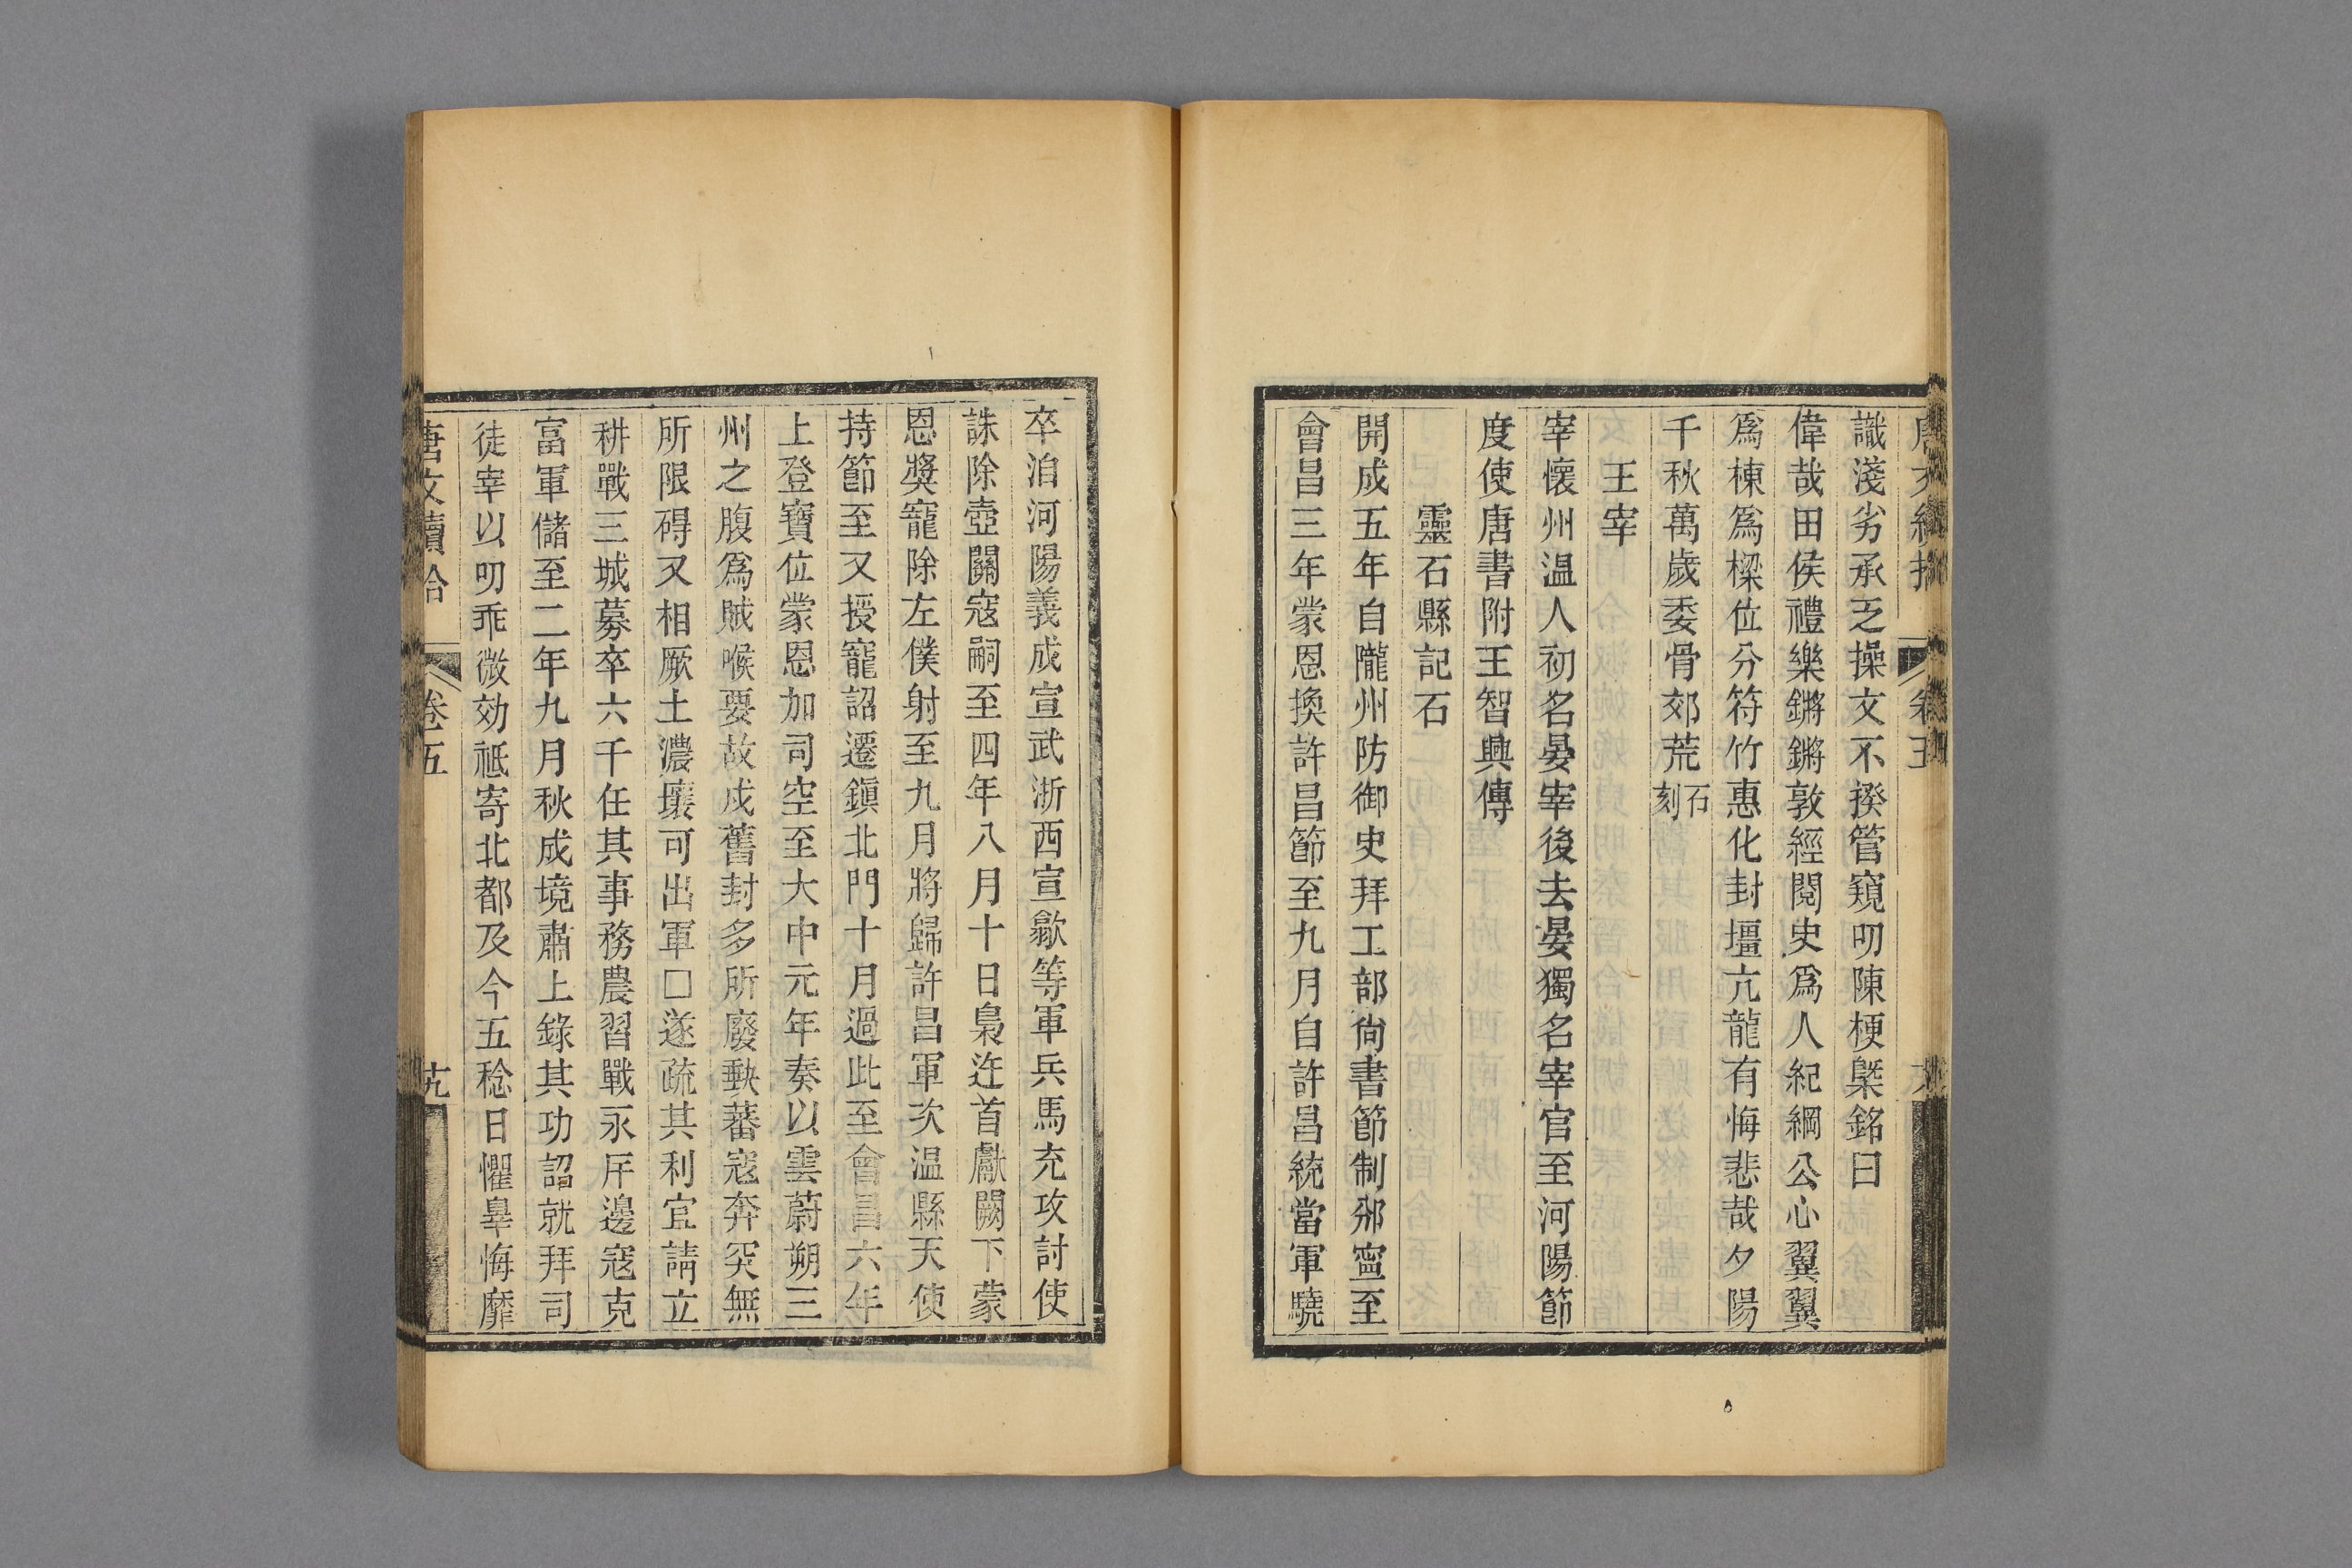 識淺劣承乏操文不揆管窺叨陳梗槩銘曰
偉哉田侯禮樂鏘鏘敦經閱史爲人紀綱公心翼翼
爲棟爲樑位分符竹惠化封壃亢龍有悔悲哉夕陽
千秋萬歲委骨郊荒石刻
王宰
宰懷州温人初名晏宰後去晏獨名宰官至河陽節
度使唐書附王智興傳
靈石縣記石
開成五年自隴州防御史拜工部尙書節制邠寧至
會昌三年蒙恩換許昌節至九月自許昌統當軍驍
卒洎河陽義成宣武浙西宣歙等軍兵馬充攻討使
誅除壺關寇嗣至四年八月十日梟迕首獻闕下蒙
恩獎寵除左僕射至九月將歸許昌軍次温縣天使
持節至又授寵詔遷鎭北門十月過此至會昌六年
上登寶位蒙恩加司空至大中元年奏以雲蔚朔三
州之腹爲賊喉要故戍舊封多所廢缺蕃寇奔突無
所限碍又相厥土濃壤可出軍□遂疏其利宜請立
耕戰三城募卒六千任其事務農習戰永斥邊寇克
富軍儲至二年九月秋成境肅上錄其功詔就拜司
徒宰以叨乖微効祗寄北都及今五稔日懼辠悔靡
唐文續拾 卷五